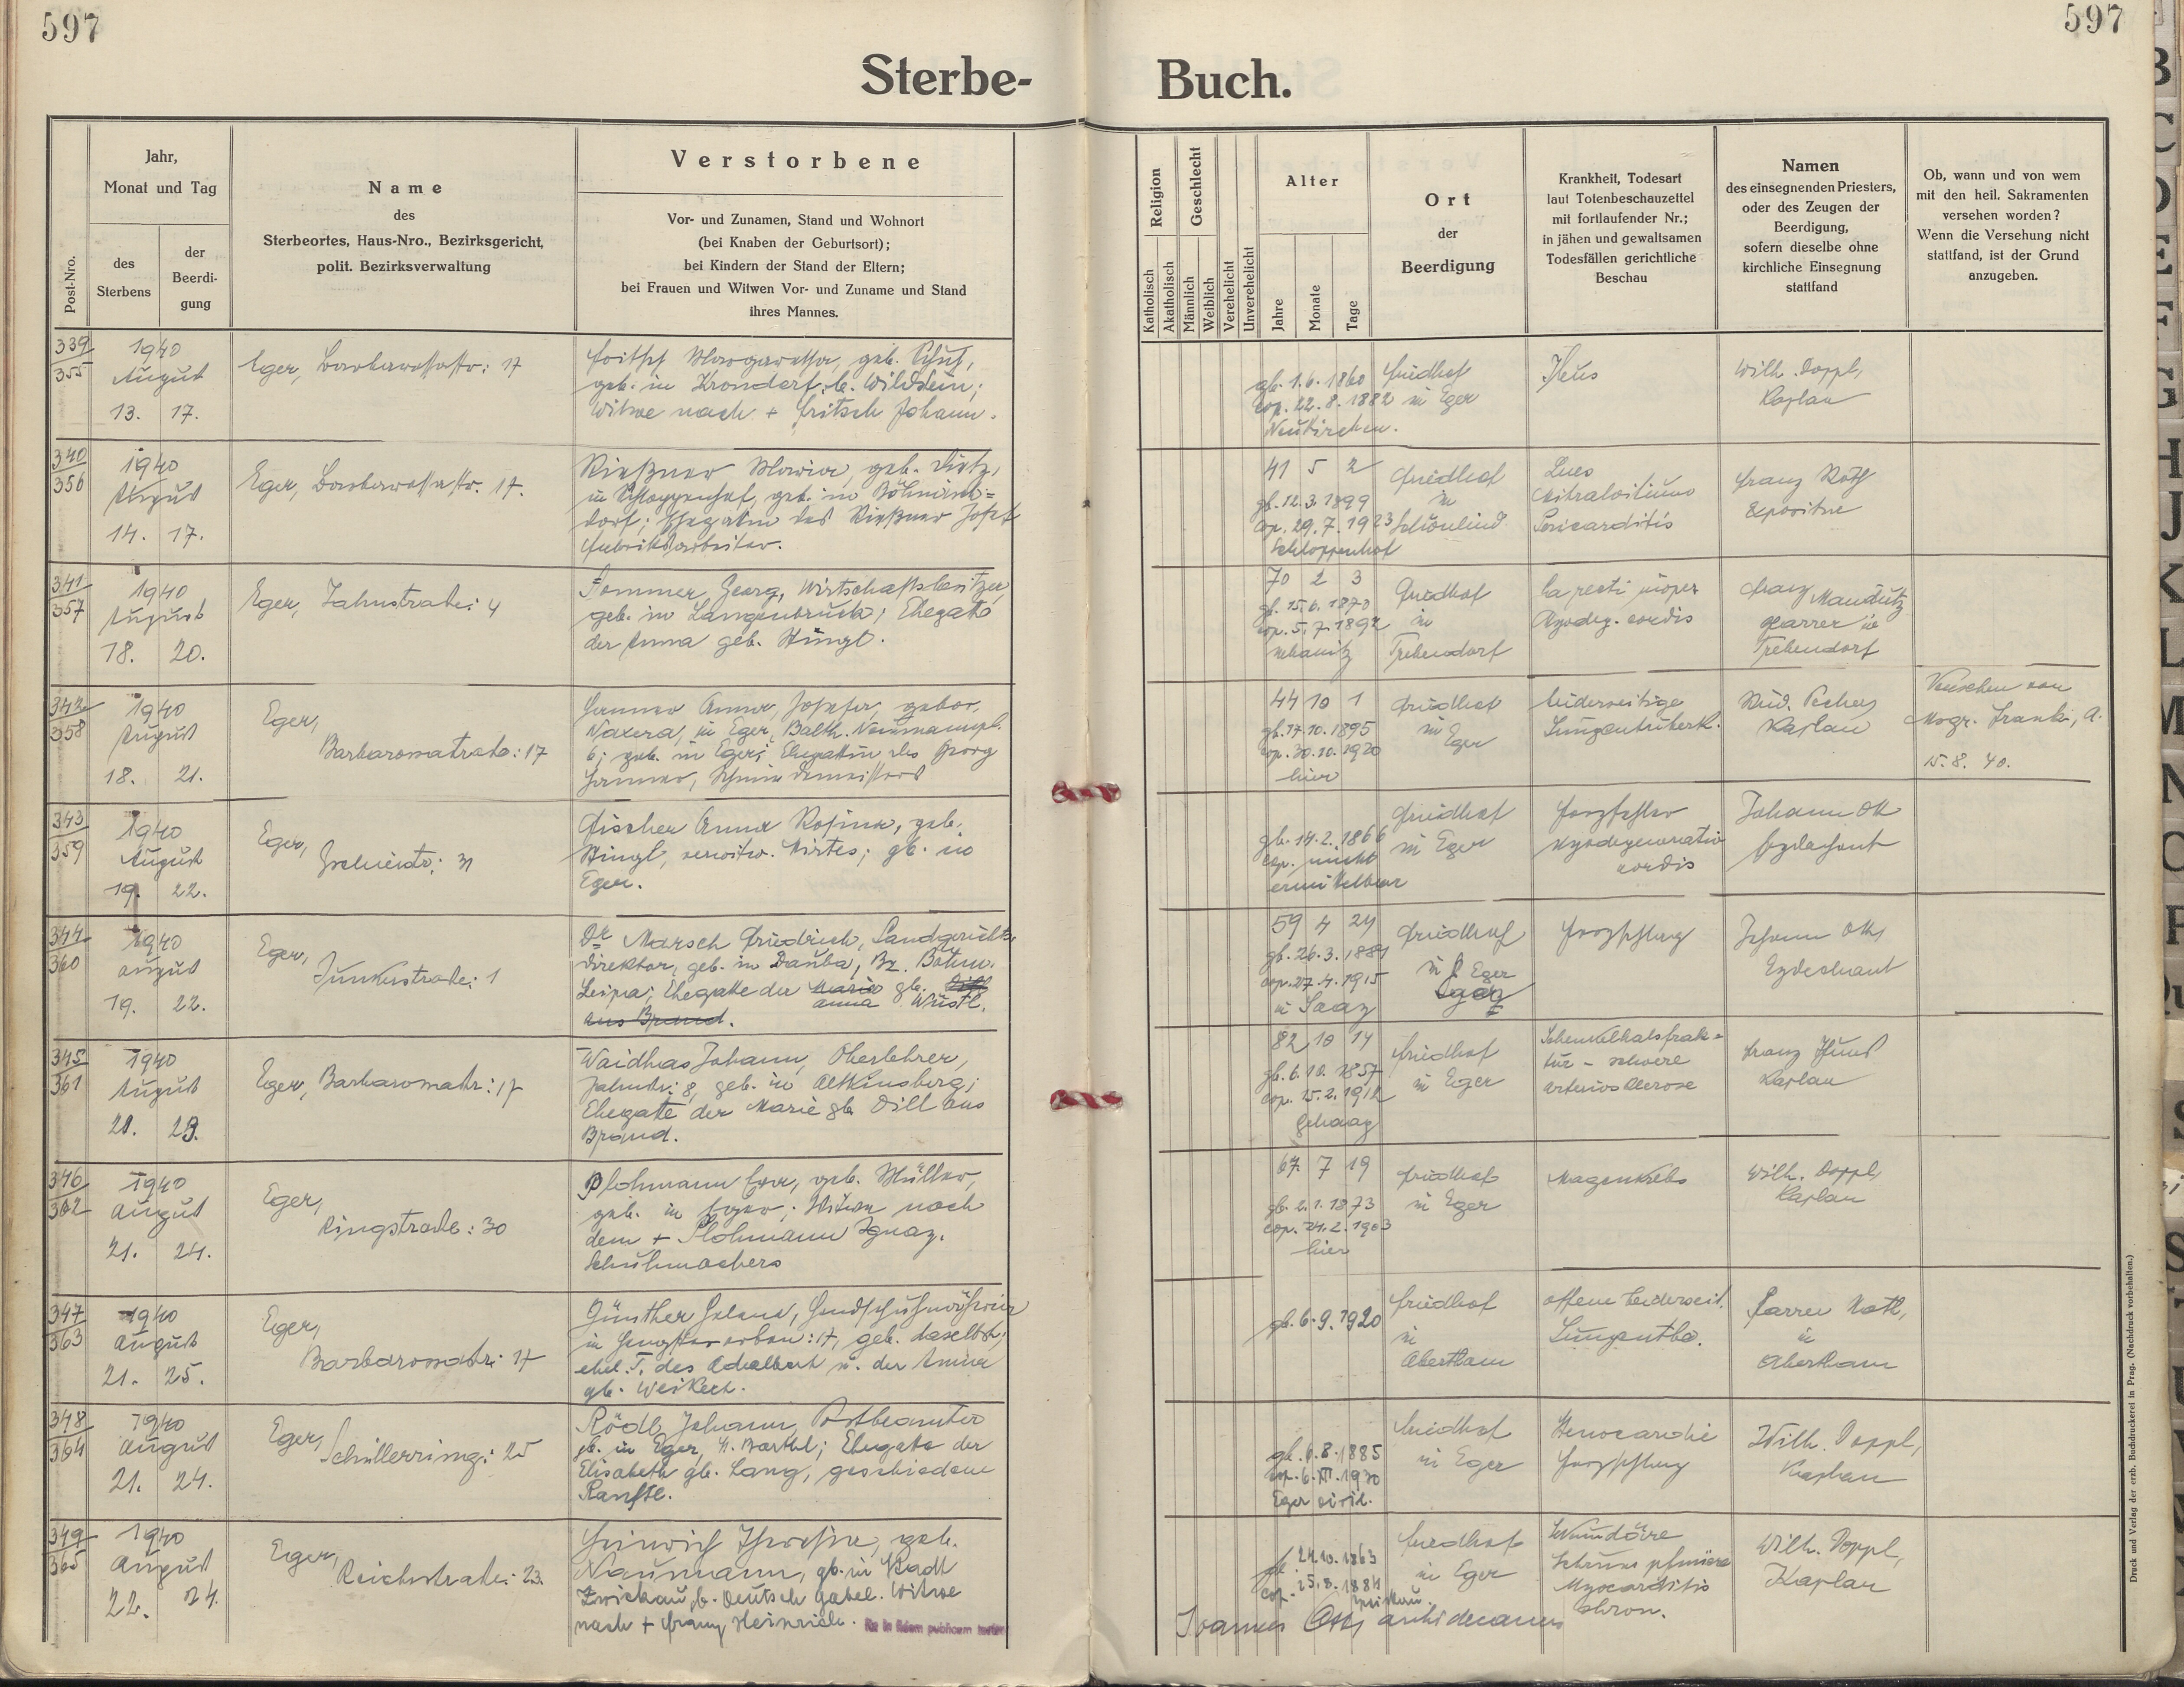 597
597
Sterbe- Buch.
Post-Nro.
Jahr,
Monat und Tag
des
Sterbens
der
Beerdi-
gung
Name
des
Sterbeortes, Haus-Nro., Bezirksgericht,
polit. Bezirksverwaltung
Verstorbene
Vor- und Zunamen, Stand und Wohnort
(bei Knaben der Geburtsort);
bei Kindern der Stand der Eltern;
bei Frauen und Witwen Vor- und Zuname und Stand
ihres Mannes.
Religion
Katholisch
Akatholisch
Geschlecht
Männlich
Weiblich
Verehelicht
Unverehelicht
Alter
Jahre
Monate
Tage
Ort
der
Beerdigung
Krankheit, Todesart
laut Totenbeschauzettel
mit fortlaufender Nr.;
in jähen und gewaltsamen
Todesfällen gerichtliche
Beschau
Namen
des einsegnenden Priesters,
oder des Zeugen der
Beerdigung,
sofern dieselbe ohne
kirchliche Einsegnung
stattfand
Ob, wann und von wem
mit den heil. Sakramenten
versehen worden?
Wenn die Versehung nicht
stattfand, ist der Grund
anzugeben.
339
355
1940
August
13. 17.
Eger, 17
geb.
geb. in Krondorf, b. Wildstein;
Witwe nach + Fritsch Johann.
gb. 1.6.1860
cop. 22.8.1882
Neukirchen.
Friedhof
in Eger
Ileus
Wilh. Doppl,
Kaplan
340
356
1940
August
14. 17.
Eger, 17.
Maria, geb.
geb. in
dorf; Ehegattin des Josef
Fabriksarbeiter.
41 5 2
gb. 12.3.1899
cop. 29.7.1923
Schloppenhof
Friedhof
in
Schönlind
Lues
Pericarditis
Franz Roth
Expositus
341
357
1940
August
18. 20.
Eger, Jahnstraße: 4
Sommer Georg, Wirtschaftsbesitzer
geb. in Langenbruck; Ehegatte
der Anna geb. Hüngl.
70 2 3
gb. 15.6.1870
cop. 5.7.1892
Friedhof
in
Trebendorf
cordis
Franz
Pfarrer in
Trebendorf
342
358
1940
August
18. 21.
Eger,
Barbarossastraße: 17
Anna, Josefa, gebor.
in Eger, Balth. Neumannpl.
6; geb. in Eger; Ehegattin des Georg
44 10 1
gb. 17.10.1895
cop. 30.10.1920
hier
Friedhof
in Eger
beiderseitige
Lungentuberk.
Rud. Pecher
Kaplan
Versehen von
Msgr. Frank, A.
15.8.40.
343
359
1940
August
19. 22.
Eger,
Fischer Anna Rosina, geb.
Hüngl, verwitw. gb. in
Eger.
gb. 14.2.1866
cop. nicht
ermittelbar
Friedhof
in Eger
Herzfehler
Myodegeneratio
cordis
Johann Ott
Erzdechant
344
360
1940
August
19. 22.
Eger,
1
Dr Marsch Friedrich, Landgerichts-
direktor, geb. in Dauba, Bz. Böhm.
Leipa; Ehegatte der Maria gb. Dill
Anna Wüstl.
aus Brand.
59 4 24
gb. 26.3.1881
cop. 27.4.1915
in Saaz
Friedhof
in Eger
Herzschlag
Johann Ott,
Erzdechant
345
361
1940
August
20. 23.
Eger, Barbarossastr.: 17
Waidhas Johann, Oberlehrer,
Jahnstr.: 8, geb. in Altkinsberg;
Ehegatte der Marie gb. Dill aus
Brand.
82 10 14
gb. 6.10.1857
cop. 15.2.1912
Gehaag
Friedhof
in Eger
Schenkelhalsfrak-
tur - schwere
Arteriosklerose
Franz
Kaplan
346
362
1940
August
21. 24.
Eger,
Ringstraße: 30
Plohmann Eva, geb. Müller,
geb. in Eger; Witwe nach
dem + Plohmann Ignaz.
Schuhmachers
67. 7 19
gb. 2.1.1873
cop. 24.2.1903
hier
Friedhof
in Eger
Magenkrebs
Wilh. Doppl,
Kaplan
347
363
1940
August
21. 25.
Eger,
Barbarossastr.: 17
Günther Helena, Handschuhnäherin
in Hengstererben: 17, geb. daselbst;
ehel. T. des Adalbert u. der Anna
gb. Weikert.
gb. 6.9.1920
Friedhof
in
Abertham
offene beiderseit.
Lungentbc.
Pfarrer
in
Abertham
348
364
1940
August
21. 24.
Eger,
Schillerring: 25
Rödl Johann, Postbeamter
gb. in Eger, Ehegatte der
Elisabeth gb. Lang, geschiedene
Ranftl.
gb. 6.8.1885
cop. 6.XII.1930
Eger civil.
Friedhof
in Eger
Stenocardie
Herzschlag
Wilh. Doppl,
Kaplan
349
365
1940
August
22. 24.
Eger,
Reichsstraße: 23.
Heinrich Theresia, geb.
Naumann, gb. in Stadt
Zwickau, b. Deutsch Gabel. Witwe
nach + Franz Heinrich.
gb. 24.10.1863
cop. 25.8.1884
Zwickau.
Friedhof
in Eger
Sekundäre
Myocarditis
chron.
Wilh. Doppl,
Kaplan
Joannes Ott, archidecanus
Druck und Verlag der erzb. Buchdruckerei in Prag. (Nachdruck vorbehalten.)